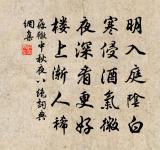 明入庭陰白
寒侵酒氣微
夜深看更好
樓上漸人稀
孫徹中秋夜八德詞典
網集